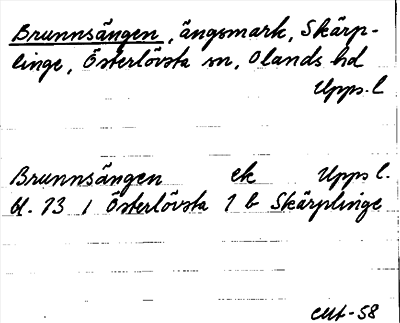 Brunnsängen, ängsmark, Skärp-
linge, Österlövsta sn, Olands hd
Upps. l
Brunnsängen ek Upps l.
bl. 13 / Österlövsta 1 b Skärplinge
-58